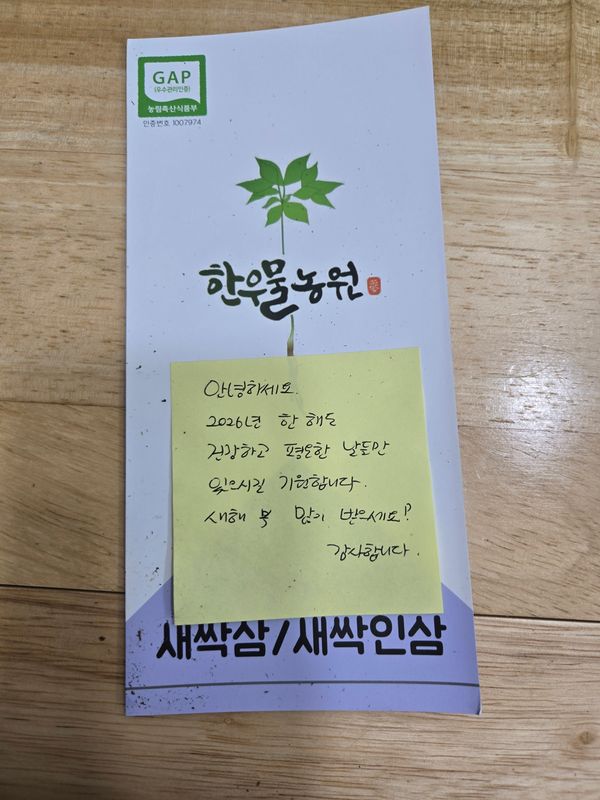 GAP
(우수관리인증)
농림축산식품부
인증번호 1007974
한우물농원
안녕하세요.
2026년 한 해도
건강하고 평온한 날들만
있으시길 기원합니다.
새해 복 많이 받으세요!
감사합니다.
새싹삼/새싹인삼